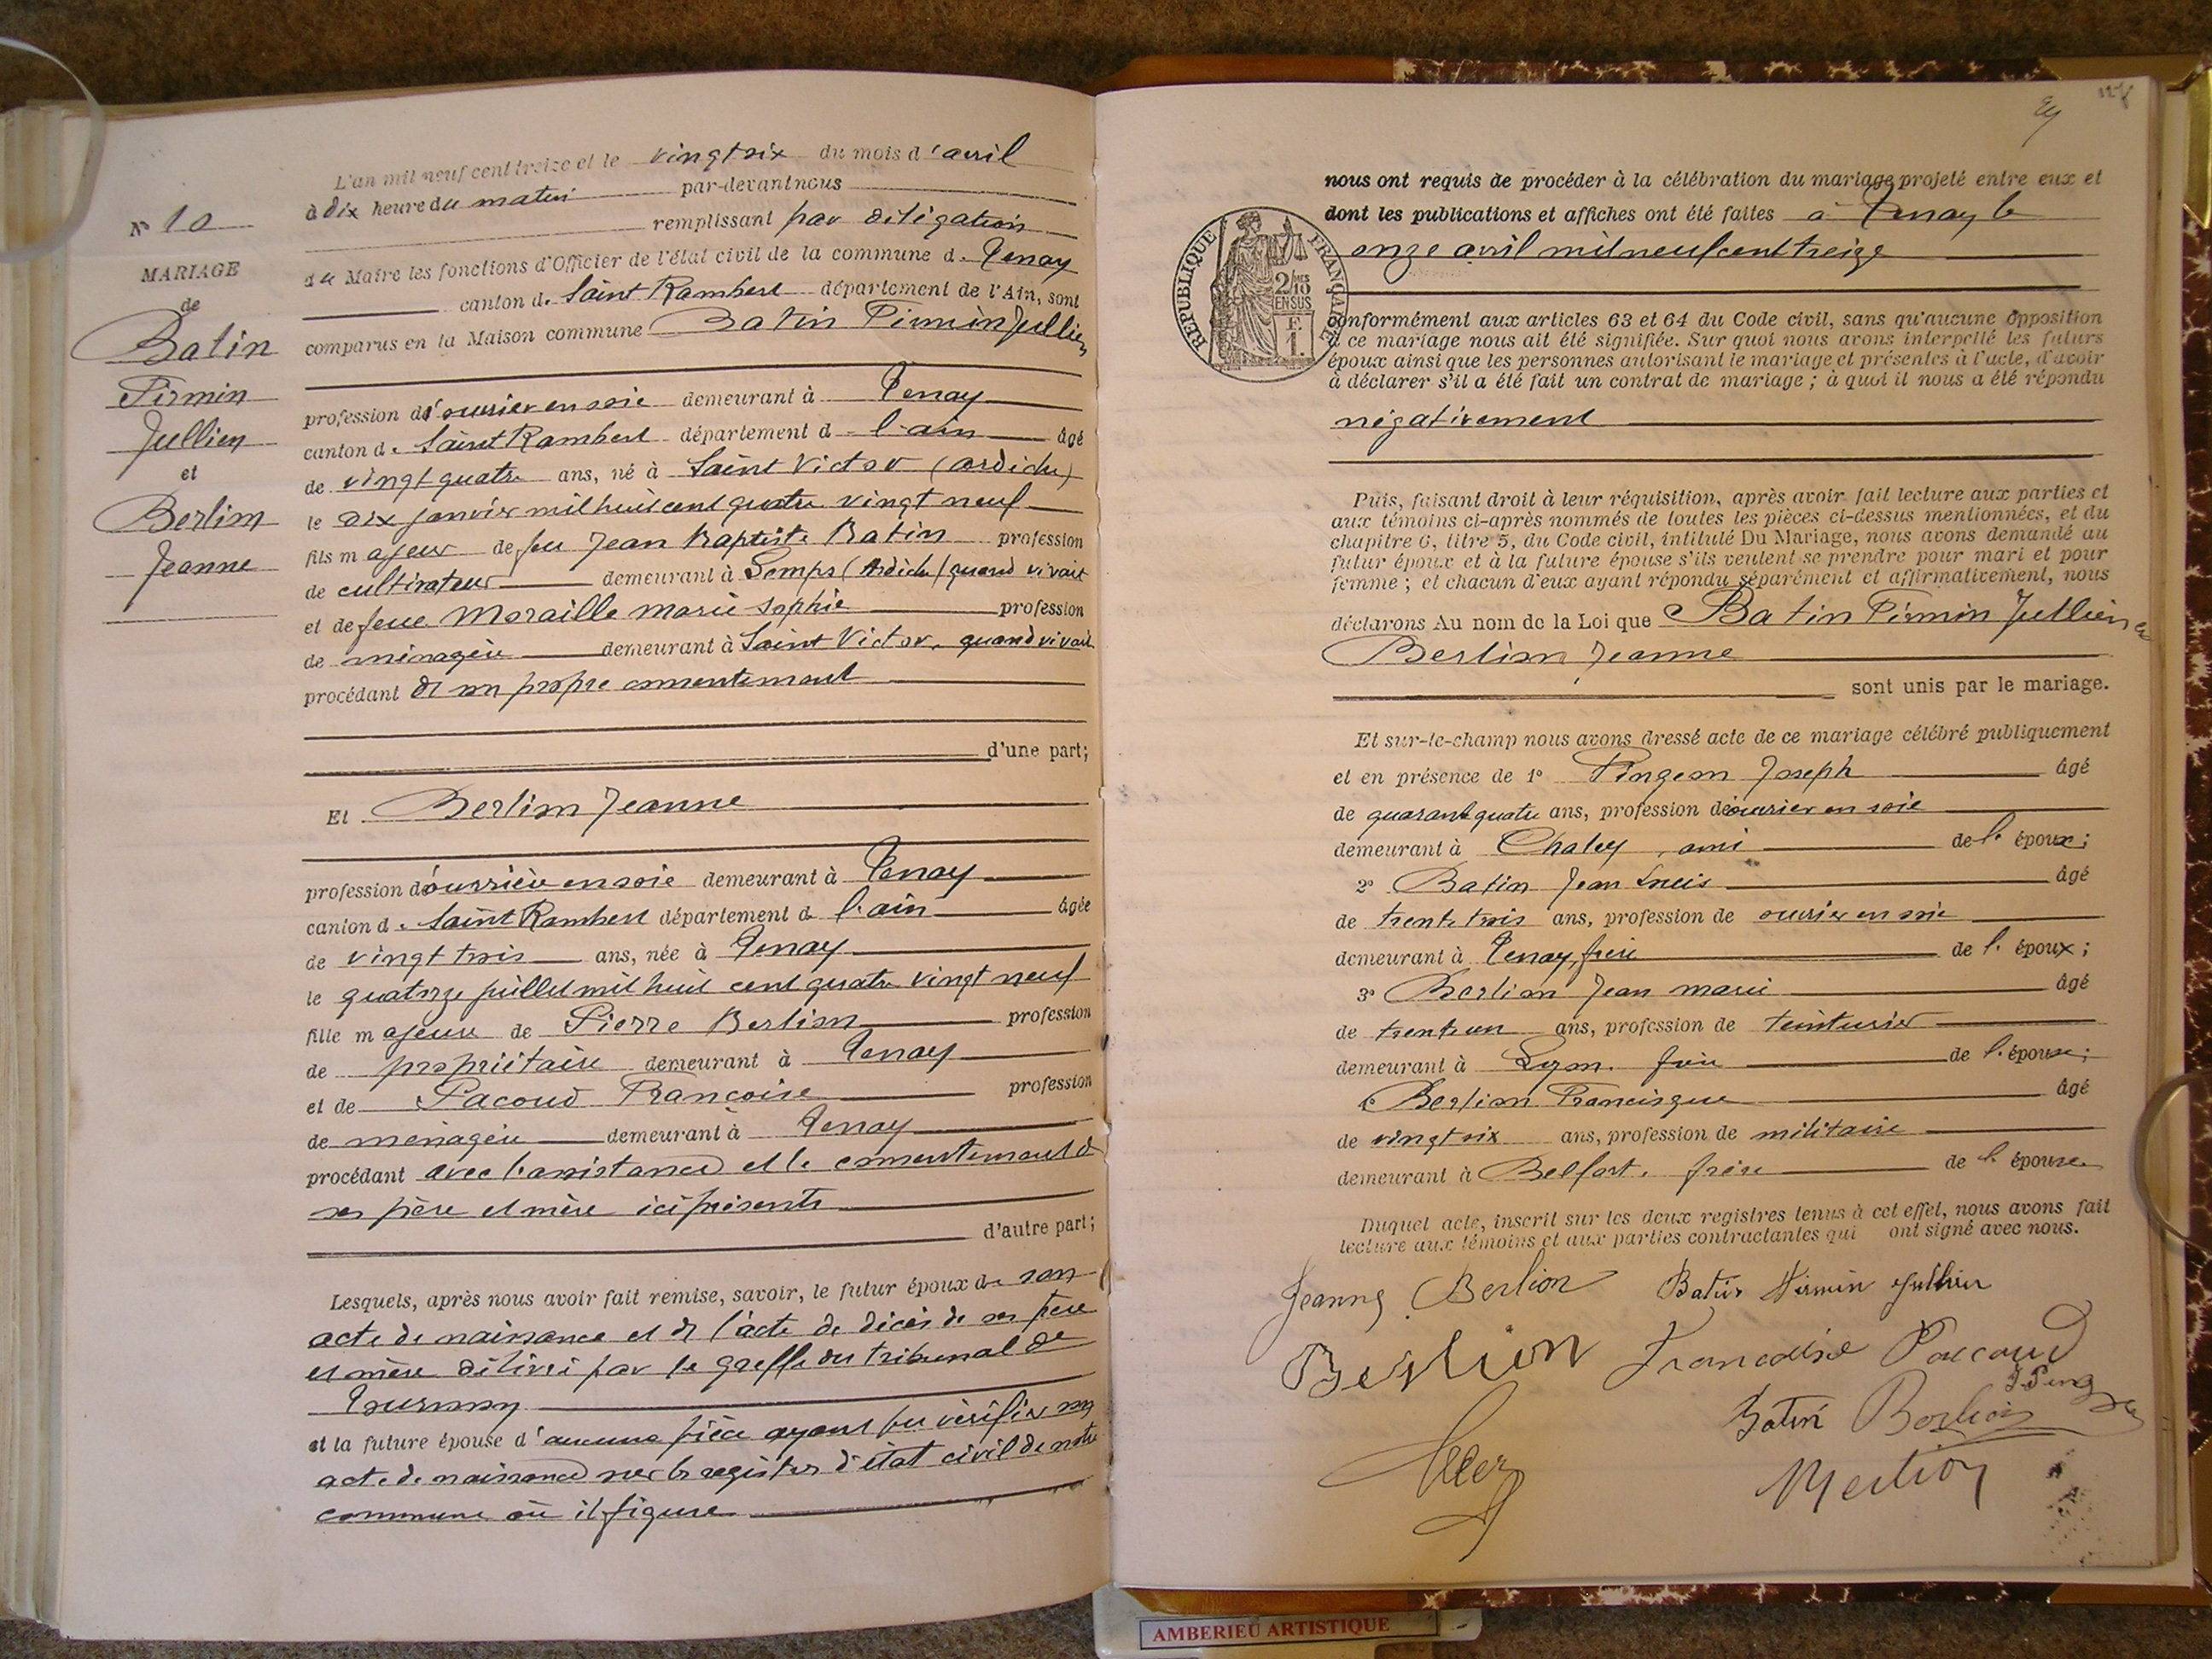 L'an mil neuf cent treize et le vingt six du mois d'avril
à dix heure du matin par-devant nous
remplissant par délégation
du Maire les fonctions d'Officier de l'état civil de la commune d. Tenay
canton d. Saint Rambert département de l'Ain, sont
comparus en la Maison commune Batin Firmin Jullien
N° 10
MARIAGE
de
Batin
Firmin
Jullien
et
Berlion
Jeanne
profession d'ouvrier en soie demeurant à Tenay
canton d. Saint Rambert département d l'ain âgé
de vingt quatre ans, né à Saint Victor (ardèche)
le dix janvier mil huit cent quatre vingt neuf
fils majeur de feu Jean Baptiste Batin profession
de cultivateur demeurant à Lemps (Ardèche) quand vivait
et de feue Moraille marie Sophie profession
de ménagère demeurant à Saint Victor, quand vivait
procédant de son propre consentement
d'une part;
Et Berlion Jeanne
profession d'ouvrière en soie demeurant à Tenay
canton d. Saint Rambert département d l'ain âgée
de vingt trois ans, née à Tenay
le quatorze juillet mil huit cent quatre vingt neuf
fille majeure de Pierre Berlion profession
de propriétaire demeurant à Tenay
et de Pacoud Françoise profession
de ménagère demeurant à Tenay
procédant avec l'assistance et le consentement de
ses père et mère ici présents
d'autre part;
Lesquels, après nous avoir fait remise, savoir, le futur époux de son
acte de naissance et de l'acte de décès de ses père
et mère délivré par le greffe du tribunal de
Tournon
et la future épouse d'aucune pièce ayant pu vérifier son
acte de naissance sur les registres d'état civil de notre
commune où il figure
nous ont requis de procéder à la célébration du mariage projeté entre eux et
dont les publications et affiches ont été faites à Tenay le
onze avril mil neuf cent treize
REPUBLIQUE FRANÇAISE
2/10 MES
EN SUS
F.
1.
conformément aux articles 63 et 64 du Code civil, sans qu'aucune opposition
à ce mariage nous ait été signifiée. Sur quoi nous avons interpellé les futurs
époux ainsi que les personnes autorisant le mariage et présentes à l'acte, d'avoir
à déclarer s'il a été fait un contrat de mariage ; à quoi il nous a été répondu
négativement
Puis, faisant droit à leur réquisition, après avoir fait lecture aux parties et
aux témoins ci-après nommés de toutes les pièces ci-dessus mentionnées, et du
chapitre 6, titre 5, du Code civil, intitulé Du Mariage, nous avons demandé au
futur époux et à la future épouse s'ils veulent se prendre pour mari et pour
femme ; et chacun d'eux ayant répondu séparément et affirmativement, nous
déclarons Au nom de la Loi que Batin Firmin Jullien et
Berlion Jeanne
sont unis par le mariage.
Et sur-le-champ nous avons dressé acte de ce mariage célébré publiquement
et en présence de 1° Pingeon Joseph âgé
de quarante quatre ans, profession d'ouvrier en soie
demeurant à Chaley, ami de l. époux;
2° Batin Jean Louis âgé
de trente trois ans, profession de ouvrier en soie
demeurant à Tenay, frère de l. époux;
3° Berlion Jean marie âgé
de trente un ans, profession de teinturier
demeurant à Lyon. frère de l. épouse;
Berlion Francisque âgé
de vingt six ans, profession de militaire
demeurant à Belfort. frère de l. épouse
Duquel acte, inscrit sur les deux registres tenus à cet effet, nous avons fait
lecture aux témoins et aux parties contractantes qui ont signé avec nous.
Jeanne Berlion Batin Firmin Jullien
Berlion Francoise Paccoud
Batin Berlion
Berlion
AMBERIEU ARTISTIQUE